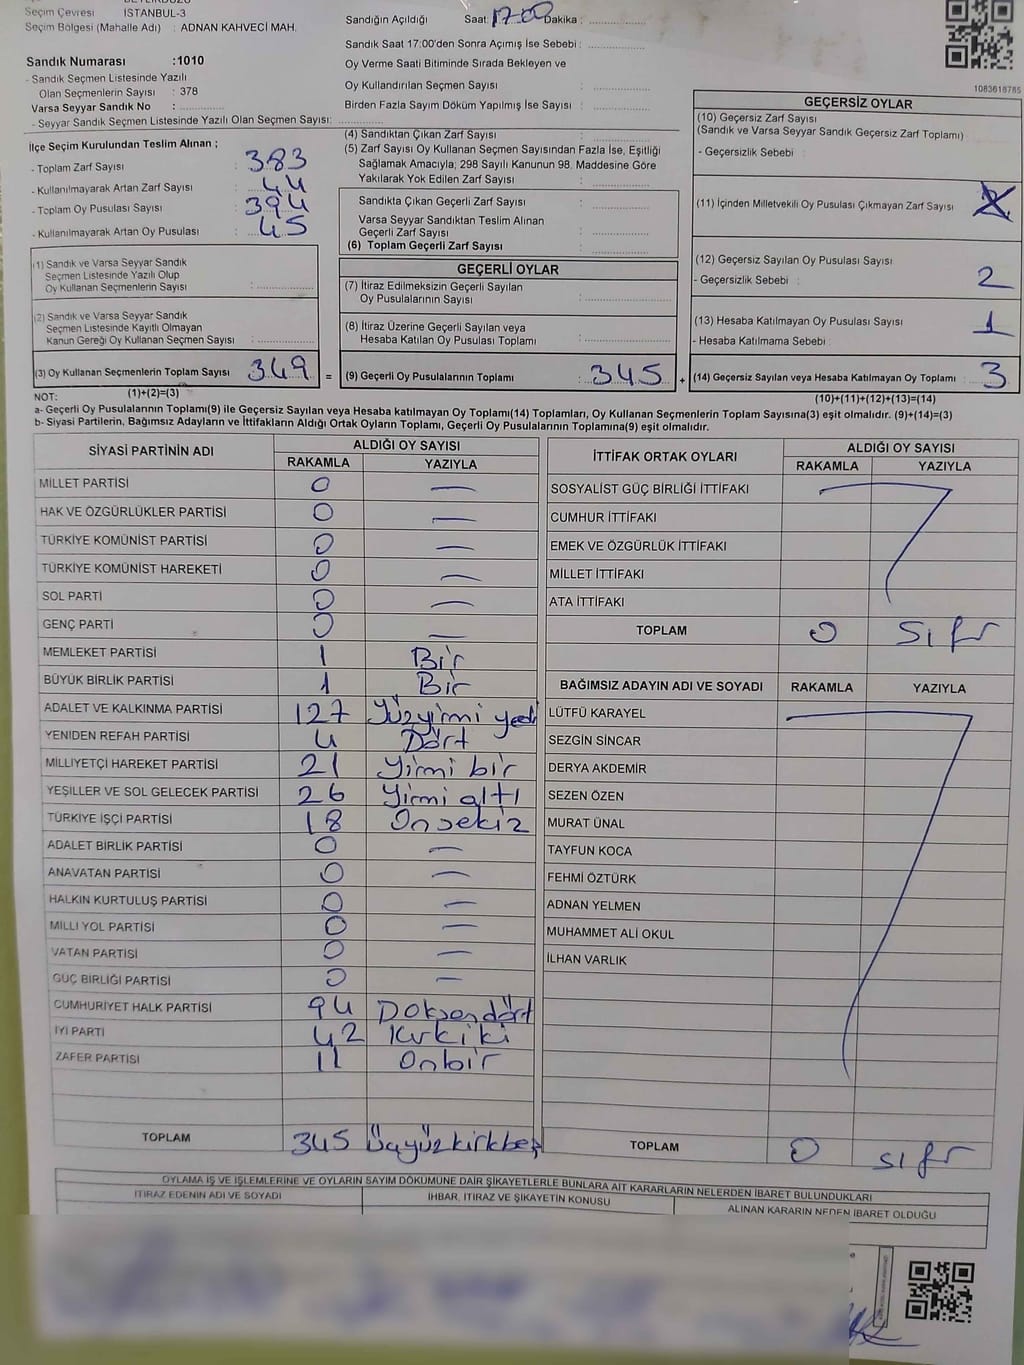 Seçim Çevresi : İSTANBUL-3
Seçim Bölgesi (Mahalle Adı) : ADNAN KAHVECİ MAH.
Sandık Numarası :1010
- Sandık Seçmen Listesinde Yazılı
Olan Seçmenlerin Sayısı : 378
Varsa Seyyar Sandık No :
- Seyyar Sandık Seçmen Listesinde Yazılı Olan Seçmen Sayısı:
İlçe Seçim Kurulundan Teslim Alınan ;
- Toplam Zarf Sayısı : 383
- Kullanılmayarak Artan Zarf Sayısı : 44
- Toplam Oy Pusulası Sayısı : 394
- Kullanılmayarak Artan Oy Pusulası : 45
(1) Sandık ve Varsa Seyyar Sandık
Seçmen Listesinde Yazılı Olup
Oy Kullanan Seçmenlerin Sayısı :
(2) Sandık ve Varsa Seyyar Sandık
Seçmen Listesinde Kayıtlı Olmayan
Kanun Gereği Oy Kullanan Seçmen Sayısı :
(3) Oy Kullanan Seçmenlerin Toplam Sayısı 349 =
(1)+(2)=(3)
Sandığın Açıldığı Saat: 17.00 Dakika :
Sandık Saat 17:00'den Sonra Açımış İse Sebebi :
Oy Verme Saati Bitiminde Sırada Bekleyen ve
Oy Kullandırılan Seçmen Sayısı :
Birden Fazla Sayım Döküm Yapılmış İse Sayısı :
(4) Sandıktan Çıkan Zarf Sayısı :
(5) Zarf Sayısı Oy Kullanan Seçmen Sayısından Fazla İse, Eşitliği
Sağlamak Amacıyla, 298 Sayılı Kanunun 98. Maddesine Göre
Yakılarak Yok Edilen Zarf Sayısı :
Sandıkta Çıkan Geçerli Zarf Sayısı :
Varsa Seyyar Sandıktan Teslim Alınan
Geçerli Zarf Sayısı :
(6) Toplam Geçerli Zarf Sayısı :
GEÇERLİ OYLAR
(7) İtiraz Edilmeksizin Geçerli Sayılan
Oy Pusulalarının Sayısı :
(8) İtiraz Üzerine Geçerli Sayılan veya
Hesaba Katılan Oy Pusulası Toplamı :
(9) Geçerli Oy Pusulalarının Toplamı : 345 +
1083618765
GEÇERSİZ OYLAR
(10) Geçersiz Zarf Sayısı
(Sandık ve Varsa Seyyar Sandık Geçersiz Zarf Toplamı) :
- Geçersizlik Sebebi :
(11) İçinden Milletvekili Oy Pusulası Çıkmayan Zarf Sayısı
(12) Geçersiz Sayılan Oy Pusulası Sayısı 2
- Geçersizlik Sebebi :
(13) Hesaba Katılmayan Oy Pusulası Sayısı 1
- Hesaba Katılmama Sebebi :
(14) Geçersiz Sayılan veya Hesaba Katılmayan Oy Pusulası Toplamı : 3
(10)+(11)+(12)+(13)=(14)
NOT:
a- Geçerli Oy Pusulalarının Toplamı(9) ile Geçersiz Sayılan veya Hesaba katılmayan Oy Toplamı(14) Toplamları, Oy Kullanan Seçmenlerin Toplam Sayısına(3) eşit olmalıdır. (9)+(14)=(3)
b- Siyasi Partilerin, Bağımsız Adayların ve İttifakların Aldığı Ortak Oyların Toplamı, Geçerli Oy Pusulalarının Toplamına(9) eşit olmalıdır.
SİYASİ PARTİNİN ADI ALDIĞI OY SAYISI
RAKAMLA YAZIYLA
MİLLET PARTİSİ 0 —
HAK VE ÖZGÜRLÜKLER PARTİSİ 0 —
TÜRKİYE KOMÜNİST PARTİSİ 0 —
TÜRKİYE KOMÜNİST HAREKETİ 0 —
SOL PARTİ 0 —
GENÇ PARTİ 0 —
MEMLEKET PARTİSİ 1 Bir
BÜYÜK BİRLİK PARTİSİ 1 Bir
ADALET VE KALKINMA PARTİSİ 127 Yüzyirmi yedi
YENİDEN REFAH PARTİSİ 4 Dört
MİLLİYETÇİ HAREKET PARTİSİ 21 Yirmi bir
YEŞİLLER VE SOL GELECEK PARTİSİ 26 Yirmi altı
TÜRKİYE İŞÇİ PARTİSİ 18 Onsekiz
ADALET BİRLİK PARTİSİ 0 —
ANAVATAN PARTİSİ 0 —
HALKIN KURTULUŞ PARTİSİ 0 —
MİLLİ YOL PARTİSİ 0 —
VATAN PARTİSİ 0 —
GÜÇ BİRLİĞİ PARTİSİ 0 —
CUMHURİYET HALK PARTİSİ 94 Doksandört
İYİ PARTİ 42 Kırkiki
ZAFER PARTİSİ 11 Onbir
TOPLAM 345 Üçyüzkirkbeş
İTTİFAK ORTAK OYLARI ALDIĞI OY SAYISI
RAKAMLA YAZIYLA
SOSYALİST GÜÇ BİRLİĞİ İTTİFAKI
CUMHUR İTTİFAKI
EMEK VE ÖZGÜRLÜK İTTİFAKI
MİLLET İTTİFAKI
ATA İTTİFAKI
TOPLAM 0 Sıfır
BAĞIMSIZ ADAYIN ADI VE SOYADI RAKAMLA YAZIYLA
LÜTFÜ KARAYEL
SEZGİN SİNCAR
DERYA AKDEMİR
SEZEN ÖZEN
MURAT ÜNAL
TAYFUN KOCA
FEHMİ ÖZTÜRK
ADNAN YELMEN
MUHAMMET ALİ OKUL
İLHAN VARLIK
TOPLAM 0 sıfır
OYLAMA İŞ VE İŞLEMLERİNE VE OYLARIN SAYIM DÖKÜMÜNE DAİR ŞİKAYETLERLE BUNLARA AİT KARARLARIN NELERDEN İBARET BULUNDUKLARI
İTİRAZ EDENİN ADI VE SOYADI İHBAR, İTİRAZ VE ŞİKAYETİN KONUSU ALINAN KARARIN NEDEN İBARET OLDUĞU